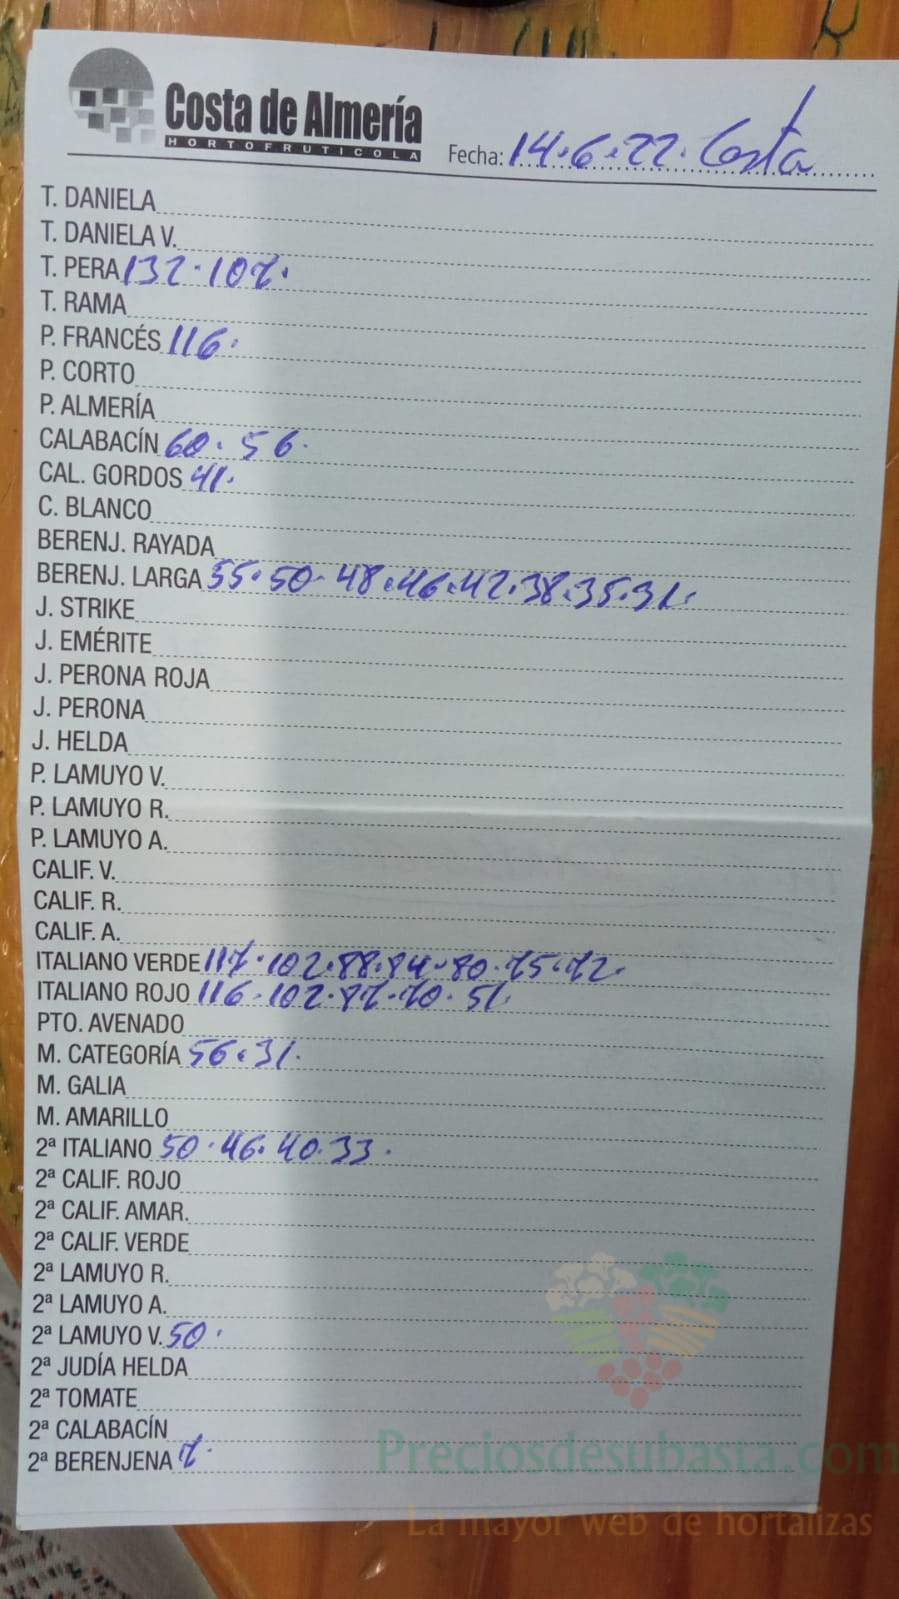 Costa de Almería
HORTOFRUTICOLA
Fecha: 14.6.22. Costa
T. DANIELA
T. DANIELA V.
T. PERA 132.107.
T. RAMA
P. FRANCÉS 116.
P. CORTO
P. ALMERÍA
CALABACÍN 60.56.
CAL. GORDOS 41.
C. BLANCO
BERENJ. RAYADA
BERENJ. LARGA 55.50.48.46.42.38.35.31.
J. STRIKE
J. EMÉRITE
J. PERONA ROJA
J. PERONA
J. HELDA
P. LAMUYO V.
P. LAMUYO R.
P. LAMUYO A.
CALIF. V.
CALIF. R.
CALIF. A.
ITALIANO VERDE 117.102.88.84.80.75.72.
ITALIANO ROJO 116.102.87.70.51.
PTO. AVENADO
M. CATEGORÍA 56.31.
M. GALIA
M. AMARILLO
2ª ITALIANO 50.46.40.33.
2ª CALIF. ROJO
2ª CALIF. AMAR.
2ª CALIF. VERDE
2ª LAMUYO R.
2ª LAMUYO A.
2ª LAMUYO V. 50.
2ª JUDÍA HELDA
2ª TOMATE
2ª CALABACÍN
2ª BERENJENA 7.
Preciosdesubasta.com
La mayor web de hortalizas